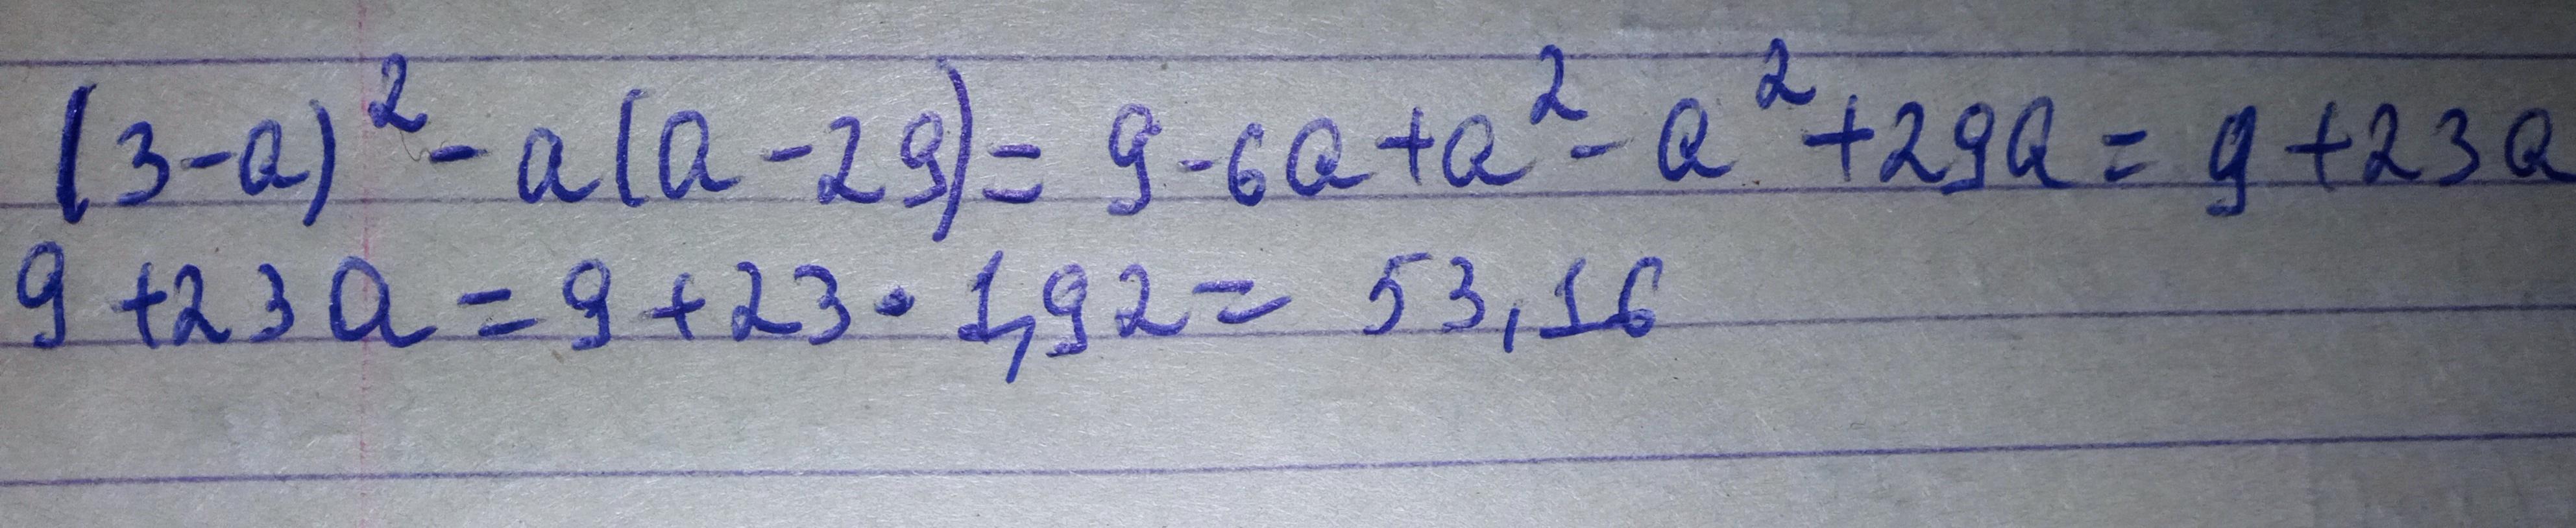 (3-a)²-a(a-29)=9-6a+a²-a²+29a=9+23a
9+23a=9+23·1,92=53,16